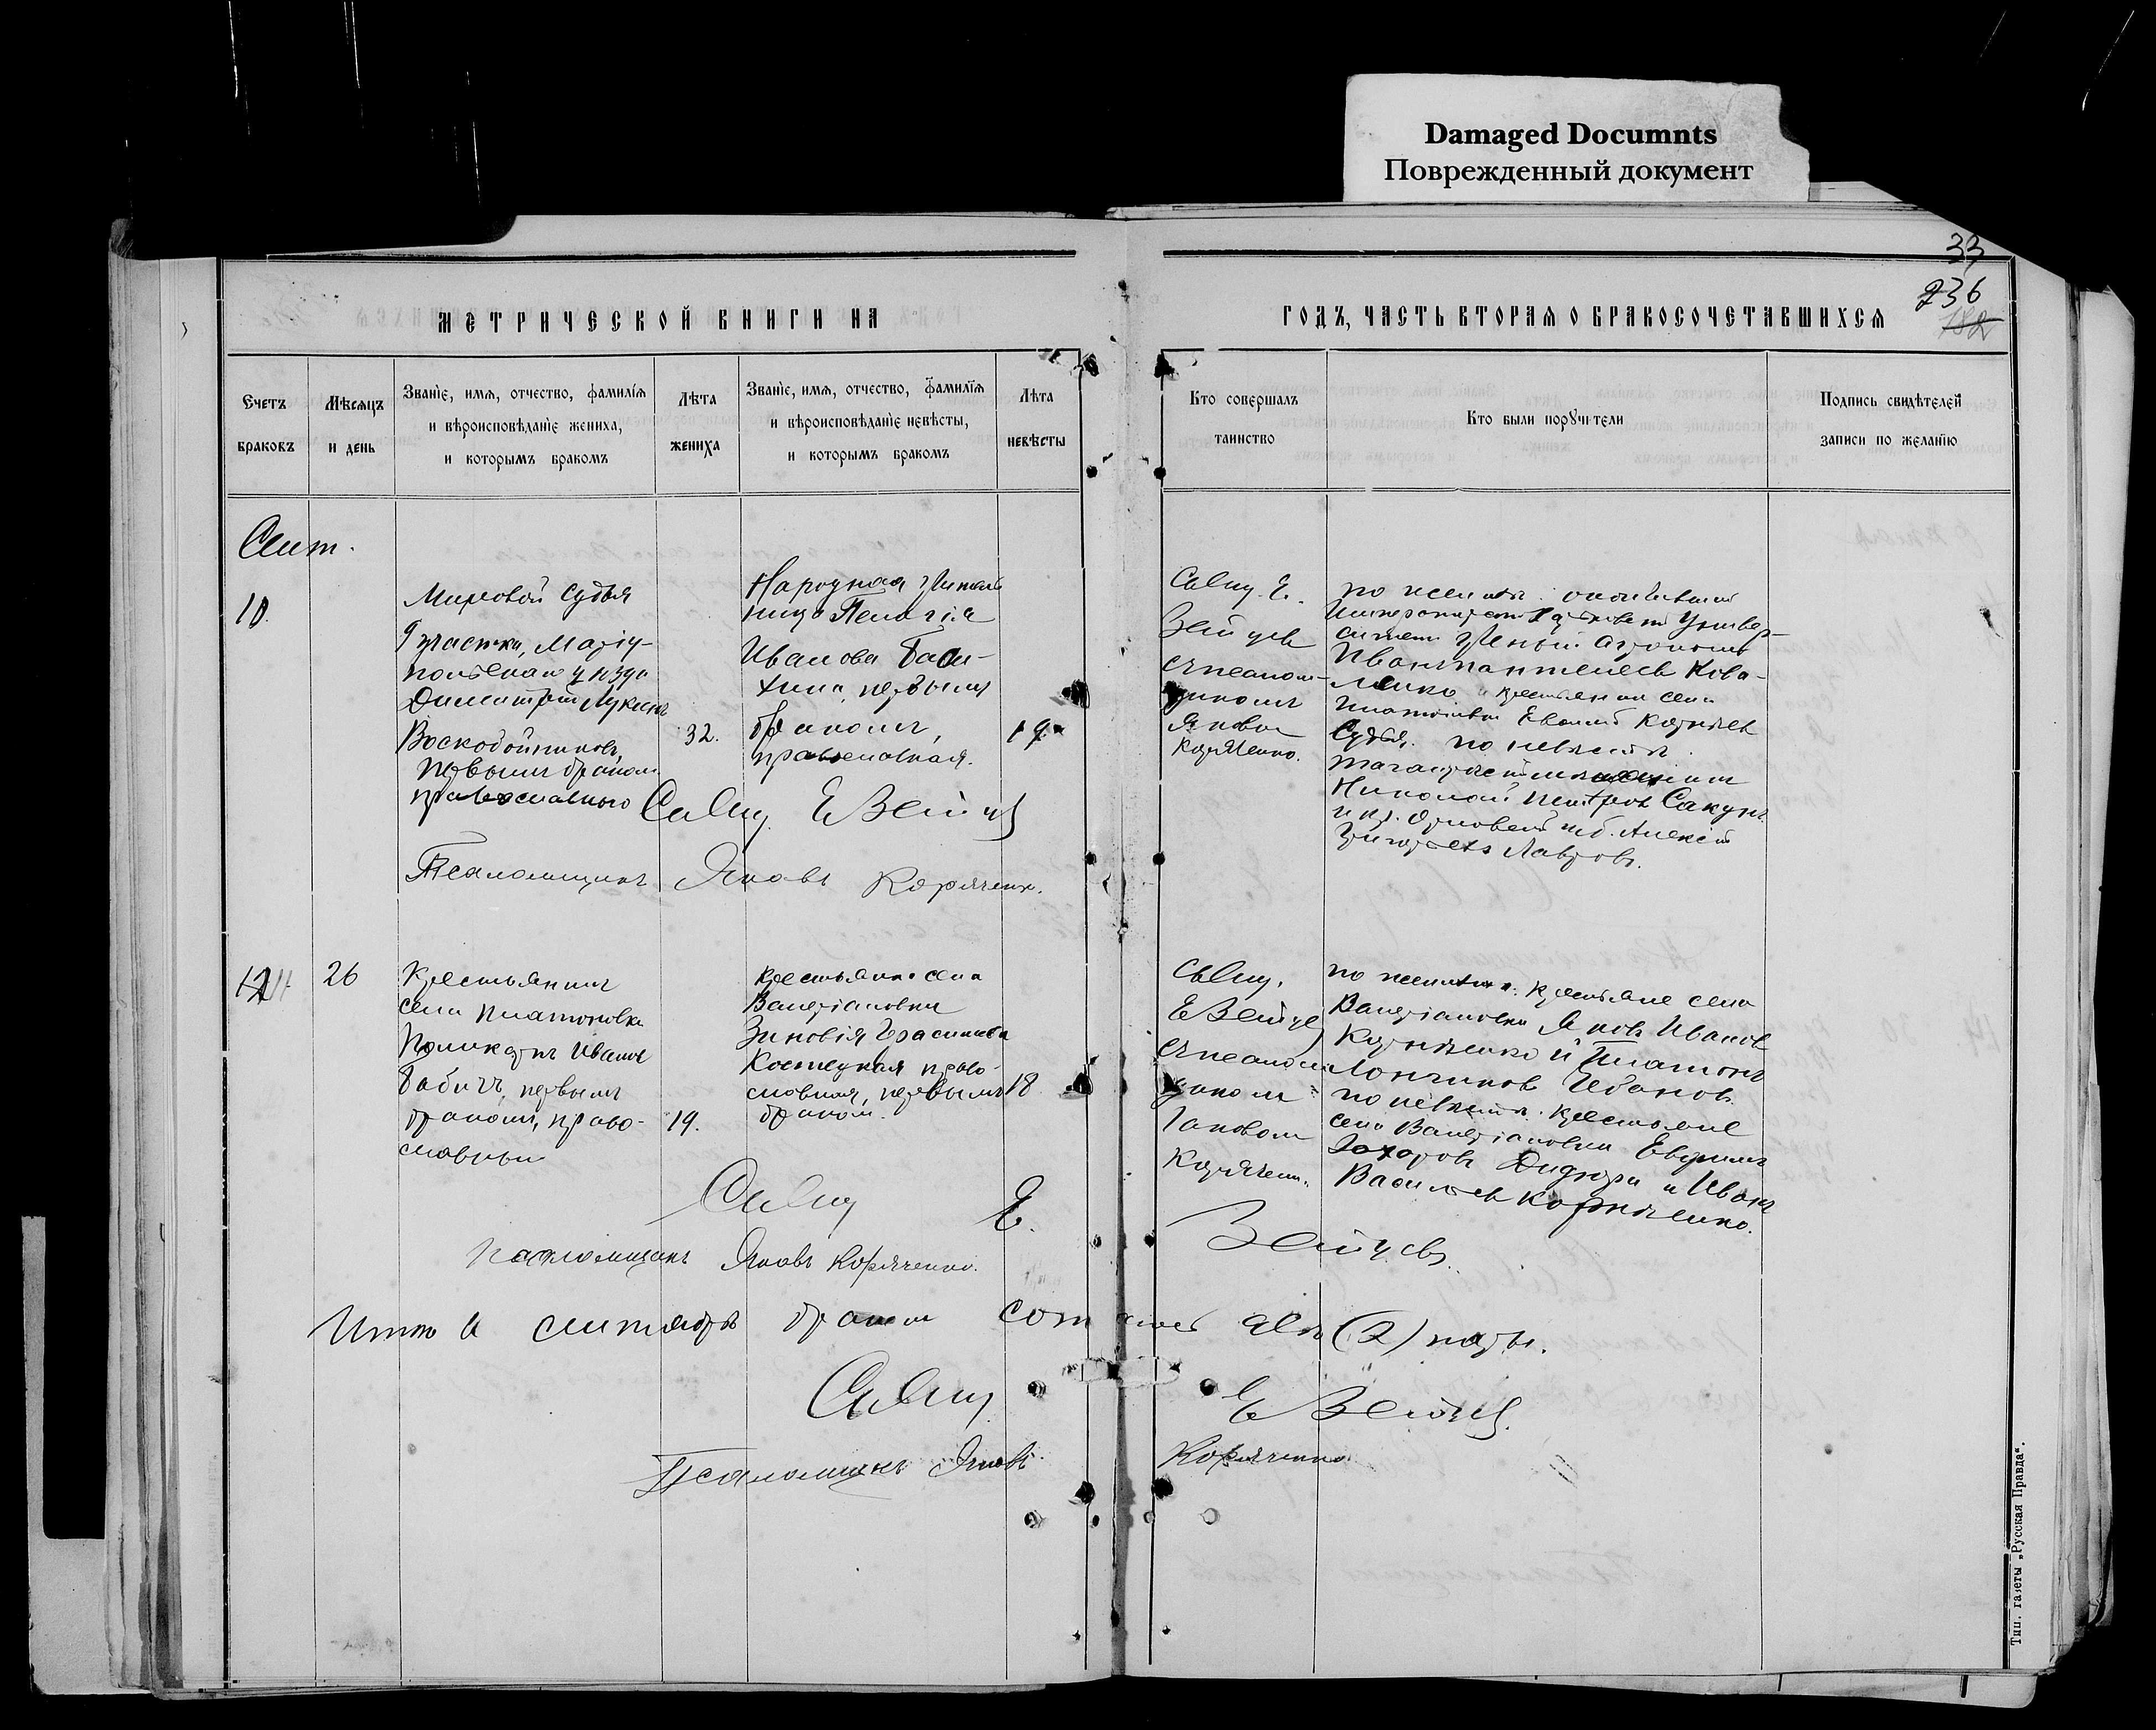 Damaged Documnts
Поврежденный документ
33
236
182
МЕТРИЧЕСКОЙ КНИГИ НА
ГОДЪ, ЧАСТЬ ВТОРАЯ О БРАКОСОЧЕТАВШИХСЯ
Счетъ
браковъ
Мѣсяцъ
и день
Званіе, имя, отчество, фамилія
и вѣроисповѣданіе жениха,
и которымъ бракомъ
Лѣта
жениха
Званіе, имя, отчество, фамилія
и вѣроисповѣданіе невѣсты,
и которымъ бракомъ
Лѣта
невѣсты
Кто совершалъ
таинство
Кто были поручители
Подпись свидѣтелей
записи по желанію
Сент.
10.
Мировой Судья
9 участка, Маріу-
польскаго уѣзда
Димитрій Лукинъ
Воскобойниковъ,
первымъ бракомъ
православнаго
32.
Народная Учитель
ница Пелагія
Иванова
первымъ
бракомъ,
православная.
19
Свящ. Е.
Зейцевъ
съ псалом-
щикомъ
Яковом
Коряченко.
по женихѣ: окончившій
Универ-
ситетъ Ученый агрономъ
Иванъ Пантелеевъ Кова-
ленко и крестьянинъ села
Платоновки Евѳимій Корніевъ
Судья, по невѣстѣ:
Николай Петровъ Сакунъ
Алексѣй
Григорьевъ Лавровъ.
Свящ. Е Зейцев
Псаломщикъ Яковъ Коряченко.
26
Крестьянинъ
села Платоновки
Поликарпъ Ивановъ
Бабичъ, первымъ
бракомъ, право-
славный
19.
Крестьянка села
Валеріановки
Зиновія Герасимова
Костецкая право-
славная, первымъ
бракомъ.
18
Свящ.
Е Зейцев
съ псаломщи
щикомъ
Яковом
Коряченк.
по женихѣ: крестьяне села
Валеріановки Яковъ Ивановъ
Корніенко и Платонъ
Лонгиновъ Чебановъ.
по невѣстѣ: крестьяне
села Валеріановки Евдокимъ
Захаровъ Дидюра и Иванъ
Васильевъ Корніенко.
Свящ Е. Зейцевъ.
Псаломщикъ Яковъ Коряченко.
Итого в сентябрѣ браком сочетано двѣ (2) пары.
Свящ. Е Зейцев.
Псаломщикъ Яковъ Коряченко
Тип. газеты „Русская Правда“.